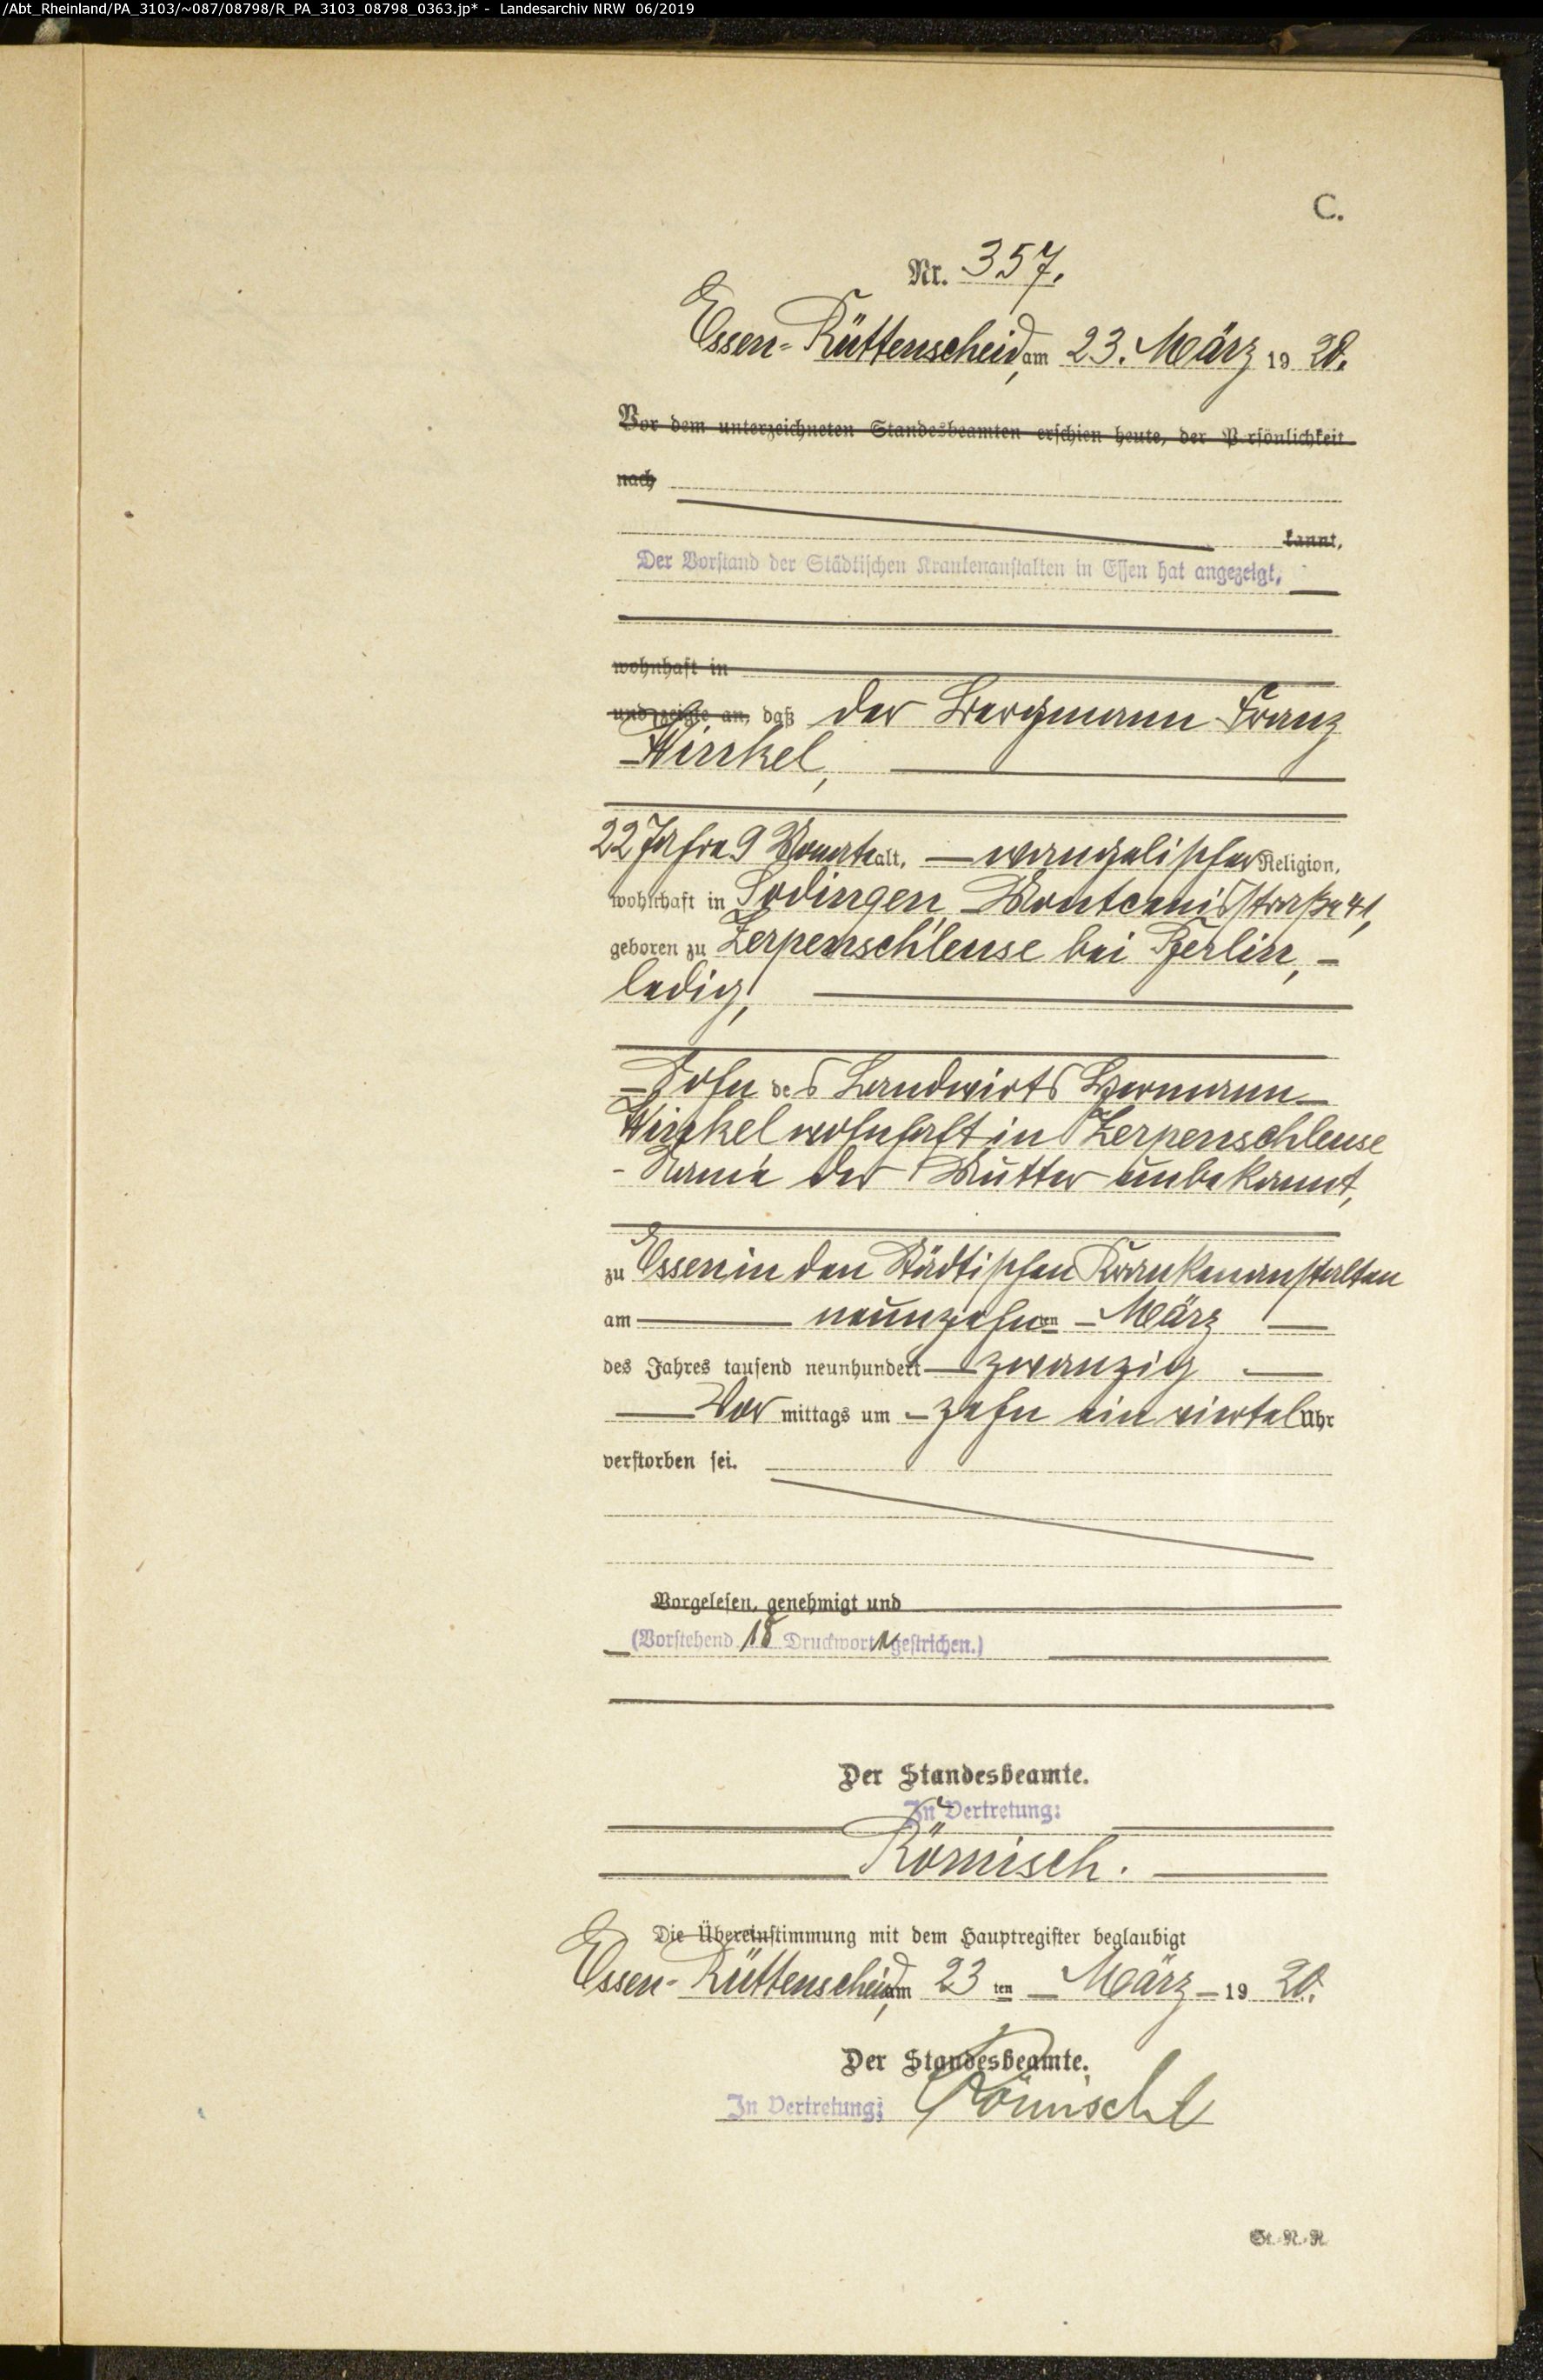 /Abt_Rheinland/PA_3103/~087/08798/R_PA_3103_08798_0363.jp* - Landesarchiv NRW 06/2019
C.
Nr. 357.
Essen-Rüttenscheid, am 23. März 19 20.
Vor dem unterzeichneten Standesbeamten erschien heute, der Persönlichkeit
nach
kannt,
Der Vorstand der Städtischen Krankenanstalten in Essen hat angezeigt,
wohnhaft in
und zeigte an, daß der Bergmann Franz
Winkel,
22 Jahre 9 Monate alt, evangelischer Religion,
wohnhaft in Sodingen Montcenisstraße 41,
geboren zu Zerpenschleuse bei Berlin,
ledig,
Sohn des Landwirts Hermann
Winkel wohnhaft in Zerpenschleuse
- Name der Mutter unbekannt,
zu Essen in den Städtischen Krankenanstalten
am neunzehnten März
des Jahres tausend neunhundert zwanzig
Vor mittags um zehn ein viertel Uhr
verstorben sei.
Vorgelesen, genehmigt und
(Vorstehend 18 Druckworte gestrichen.)
Der Standesbeamte.
In Vertretung:
Römisch.
Die Übereinstimmung mit dem Hauptregister beglaubigt
Essen-Rüttenscheid, am 23 ten März 19 20.
Der Standesbeamte.
In Vertretung: Römisch
St.-N.-R.